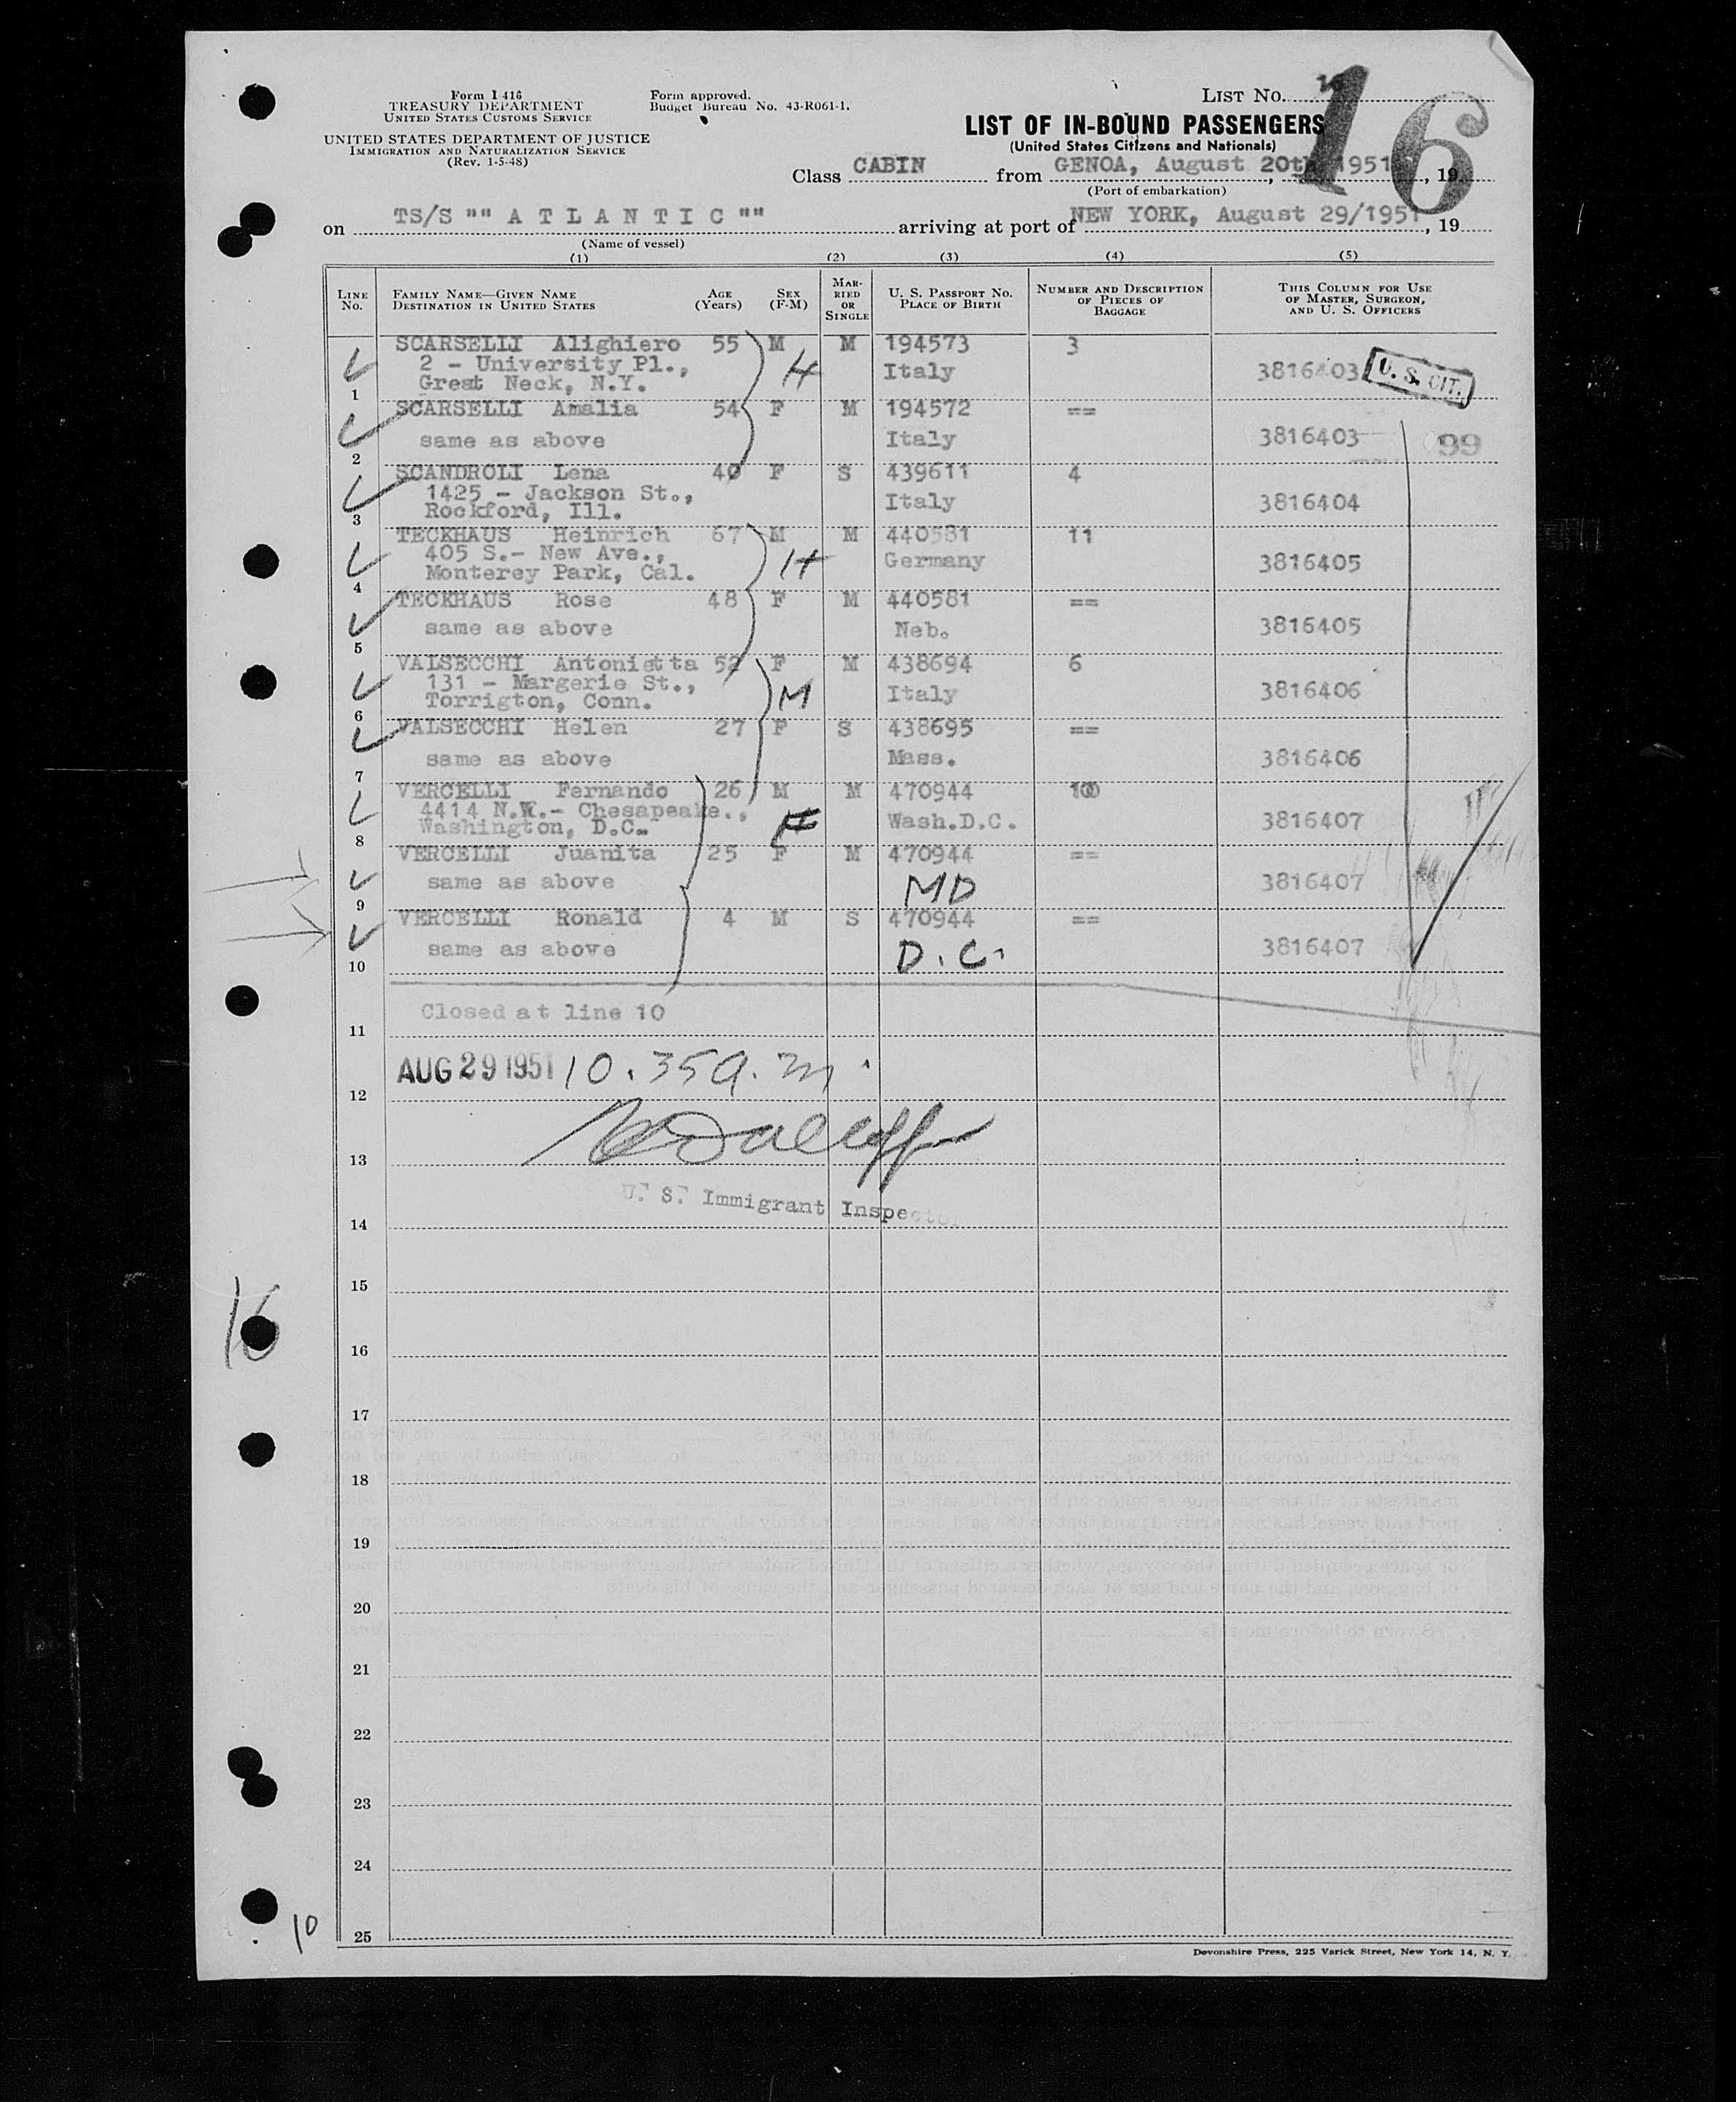 Form I 416
TREASURY DEPARTMENT
UNITED STATES CUSTOMS SERVICE
UNITED STATES DEPARTMENT OF JUSTICE
IMMIGRATION AND NATURALIZATION SERVICE
(Rev. 1-5-48)
Form approved.
Budget Bureau No. 43-R061-1.
LIST NO.
16
LIST OF IN-BOUND PASSENGERS
(United States Citizens and Nationals)
Class CABIN from GENOA, August 20th, 1951, 19
(Port of embarkation)
on TS/S "" A T L A N T I C "" arriving at port of NEW YORK, August 29/1951, 19
(Name of vessel)
(1) (2) (3) (4) (5)
LINE NO. FAMILY NAME—GIVEN NAME DESTINATION IN UNITED STATES AGE (Years) SEX (F-M) MARRIED OR SINGLE U. S. PASSPORT NO. PLACE OF BIRTH NUMBER AND DESCRIPTION OF PIECES OF BAGGAGE THIS COLUMN FOR USE OF MASTER, SURGEON, AND U. S. OFFICERS
SCARSELLI Alighiero 55 M M 194573 3
2 - University Pl., H Italy 3816403 U. S. CIT.
Great Neck, N.Y.
1
SCARSELLI Amalia 54 F M 194572 ==
same as above Italy 3816403 99
2
SCANDROLI Lena 40 F S 439611 4
1425 - Jackson St., Italy 3816404
Rockford, Ill.
3
TECKHAUS Heinrich 67 M M 440581 11
405 S.- New Ave., H Germany 3816405
Monterey Park, Cal.
4
TECKHAUS Rose 48 F M 440581 ==
same as above Neb. 3816405
5
VALSECCHI Antonietta 52 F M 438694 6
131 - Margerie St., M Italy 3816406
Torrigton, Conn.
6
VALSECCHI Helen 27 F S 438695 ==
same as above Mass. 3816406
7
VERCELLI Fernando 26 M M 470944 10
4414 N.W.- Chesapeake., H Wash.D.C. 3816407
Washington, D.C.
8
VERCELLI Juanita 25 F M 470944 ==
same as above MD 3816407
9
VERCELLI Ronald 4 M S 470944 ==
same as above D.C. 3816407
10
Closed at line 10
11
AUG 29 1951 10.35 a.m.
12
13
U. S. Immigrant Inspector
14
15
16
16
17
18
19
20
21
22
23
24
10
25
Devonshire Press, 225 Varick Street, New York 14, N. Y.